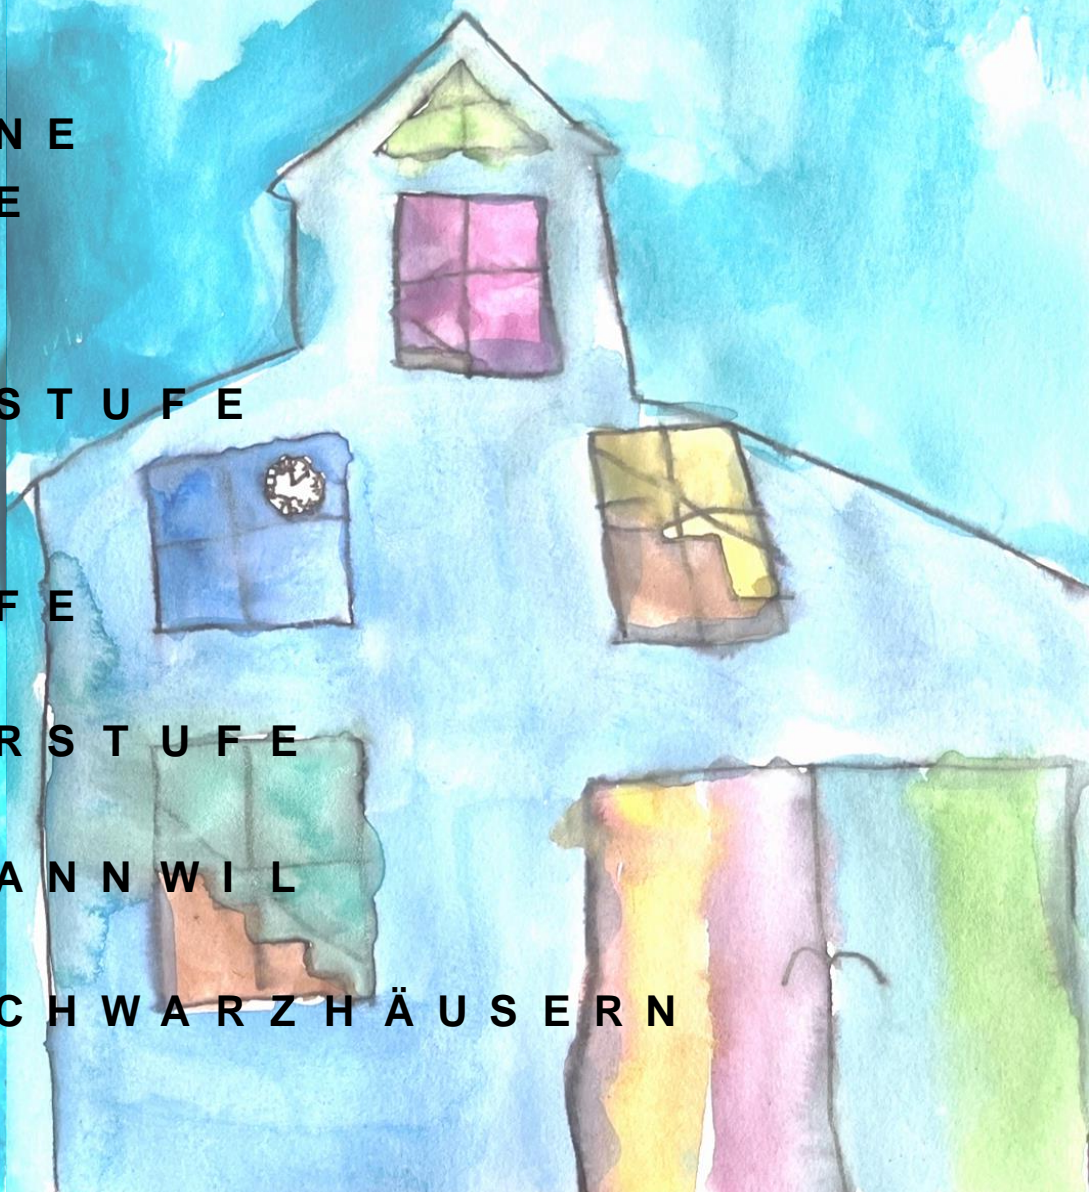 N E
E
S T U F E
F E
R S T U F E
A N N W I L
C H W A R Z H Ä U S E R N